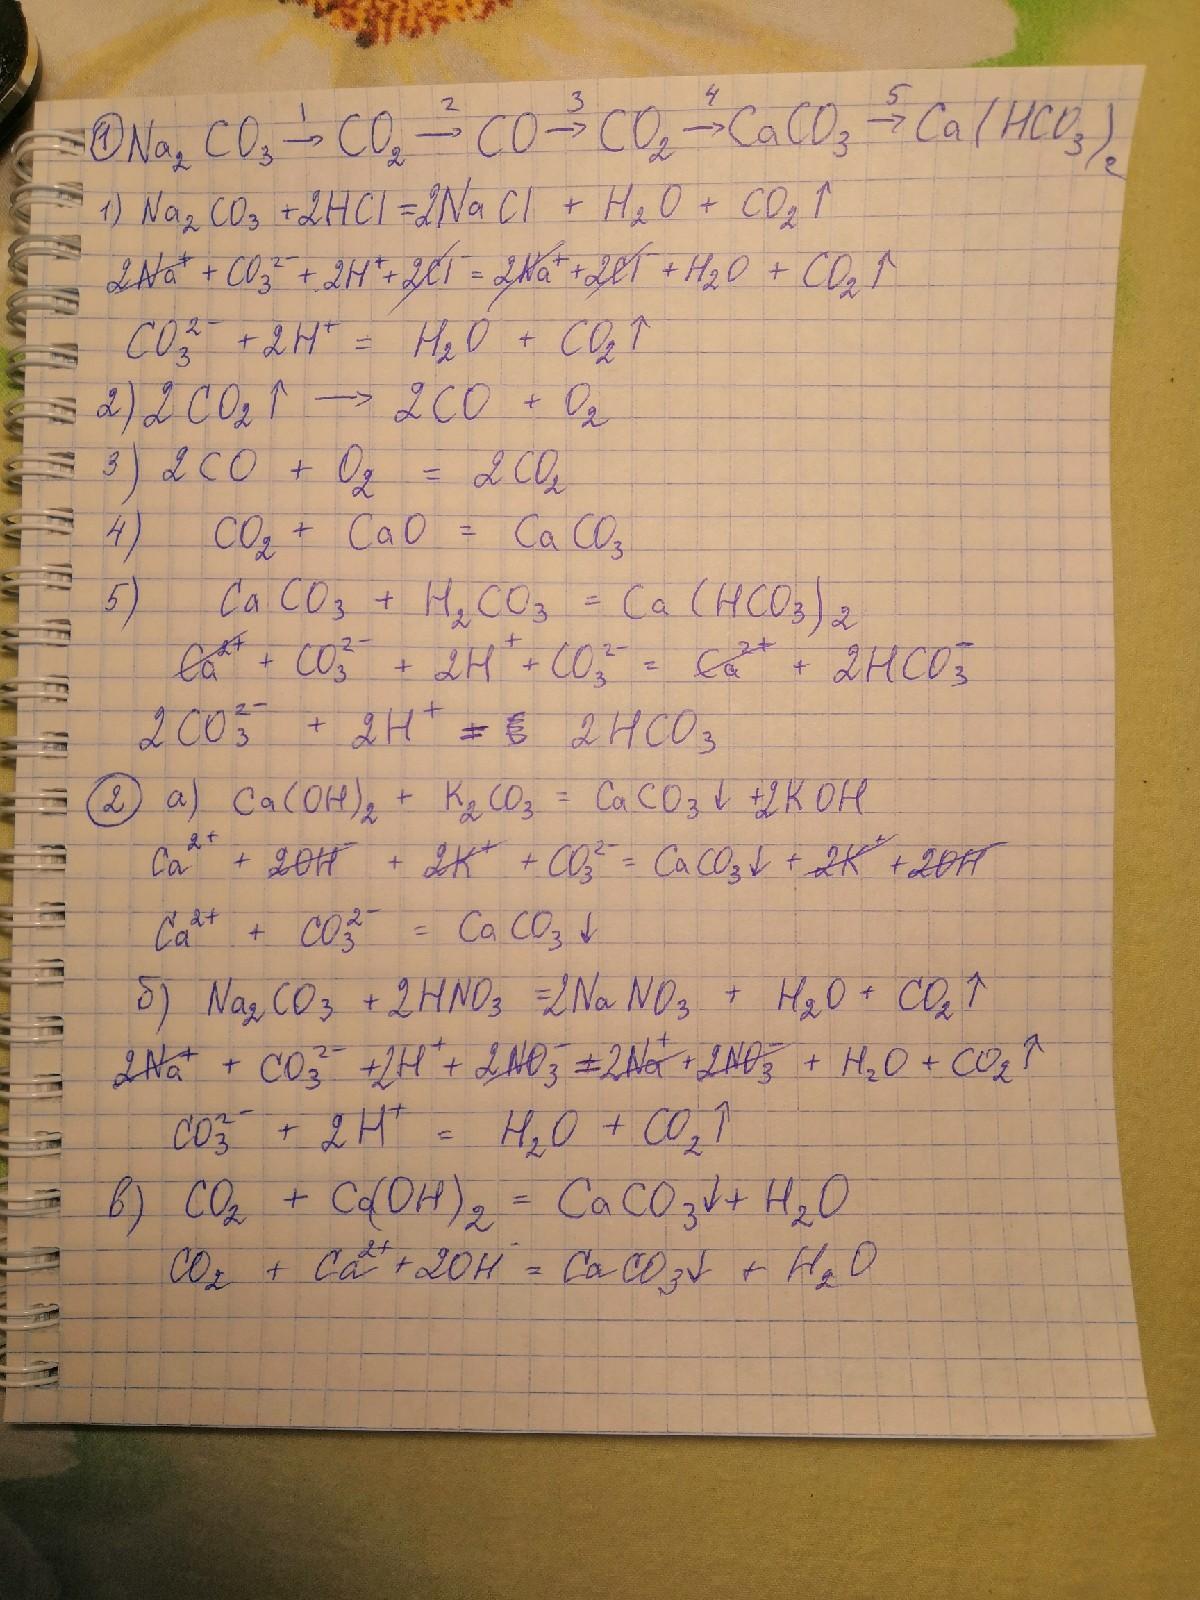 ① Na₂CO₃ →¹ CO₂ →² CO →³ CO₂ →⁴ CaCO₃ →⁵ Ca(HCO₃)₂
1) Na₂CO₃ + 2HCl = 2NaCl + H₂O + CO₂↑
2Na⁺ + CO₃²⁻ + 2H⁺ + 2Cl⁻ = 2Na⁺ + 2Cl⁻ + H₂O + CO₂↑
CO₃²⁻ + 2H⁺ = H₂O + CO₂↑
2) 2CO₂↑ → 2CO + O₂
3) 2CO + O₂ = 2CO₂
4) CO₂ + CaO = CaCO₃
5) CaCO₃ + H₂CO₃ = Ca(HCO₃)₂
Ca²⁺ + CO₃²⁻ + 2H⁺ + CO₃²⁻ = Ca²⁺ + 2HCO₃⁻
2CO₃²⁻ + 2H⁺ = 2HCO₃
② а) Ca(OH)₂ + K₂CO₃ = CaCO₃↓ + 2KOH
Ca²⁺ + 2OH⁻ + 2K⁺ + CO₃²⁻ = CaCO₃↓ + 2K⁺ + 2OH⁻
Ca²⁺ + CO₃²⁻ = CaCO₃↓
б) Na₂CO₃ + 2HNO₃ = 2NaNO₃ + H₂O + CO₂↑
2Na⁺ + CO₃²⁻ + 2H⁺ + 2NO₃⁻ = 2Na⁺ + 2NO₃⁻ + H₂O + CO₂↑
CO₃²⁻ + 2H⁺ = H₂O + CO₂↑
в) CO₂ + Ca(OH)₂ = CaCO₃↓ + H₂O
CO₂ + Ca²⁺ + 2OH⁻ = CaCO₃↓ + H₂O